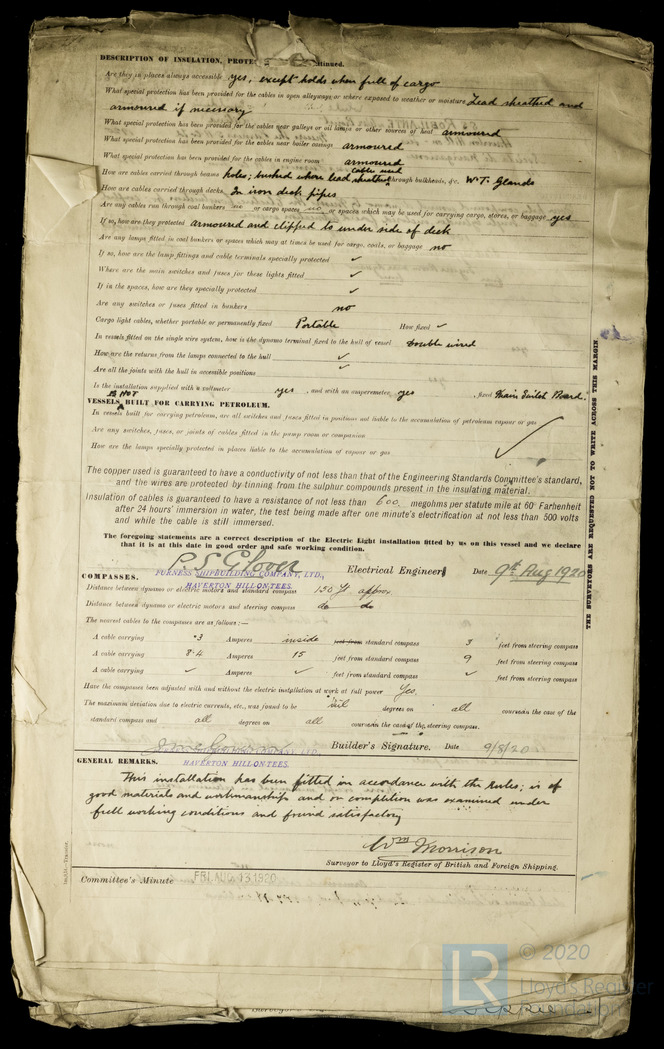 DESCRIPTION OF INSULATION, PROTE tinued.
Are they in places always accessible yes, except holds when full of cargo
What special protection has been provided for the cables in open alleyways or where exposed to weather or moisture Lead sheathed and
armoured if necessary
What special protection has been provided for the cables near galleys or oil lamps or other sources of heat armoured
What special protection has been provided for the cables near boiler casings armoured
What special protection has been provided for the cables in engine room armoured
How are cables carried through beams holes; bushed where lead sheathed cable used through bulkheads, &c. W.T. Glands
How are cables carried through decks In iron deck pipes
Are any cables run through coal bunkers no or cargo spaces no or spaces which may be used for carrying cargo, stores, or baggage yes
If so, how are they protected armoured and clipped to under side of deck
Are any lamps fitted in coal bunkers or spaces which may at times be used for cargo, coals, or baggage no
If so, how are the lamp fittings and cable terminals specially protected ✓
Where are the main switches and fuses for these lights fitted ✓
If in the spaces, how are they specially protected ✓
Are any switches or fuses fitted in bunkers no
Cargo light cables, whether portable or permanently fixed Portable How fixed ✓
In vessels fitted on the single wire system, how is the dynamo terminal fixed to the hull of vessel Double wired
How are the returns from the lamps connected to the hull ✓
Are all the joints with the hull in accessible positions ✓
Is the installation supplied with a voltmeter yes, and with an amperemeter yes, fixed Main Switch Board.
VESSELS IS NOT BUILT FOR CARRYING PETROLEUM.
In vessels built for carrying petroleum, are all switches and fuses fitted in positions not liable to the accumulation of petroleum vapour or gas
Are any switches, fuses, or joints of cables fitted in the pump room or companion
How are the lamps specially protected in places liable to the accumulation of vapour or gas
The copper used is guaranteed to have a conductivity of not less than that of the Engineering Standards Committee's standard,
and the wires are protected by tinning from the sulphur compounds present in the insulating material.
Insulation of cables is guaranteed to have a resistance of not less than 600 megohms per statute mile at 60° Farhenheit
after 24 hours' immersion in water, the test being made after one minute's electrification at not less than 500 volts
and while the cable is still immersed.
The foregoing statements are a correct description of the Electric Light installation fitted by us on this vessel and we declare
that it is at this date in good order and safe working condition.
P. S. Glover Electrical Engineers Date 9th Aug 1920
FURNESS SHIPBUILDING COMPANY, LTD.,
HAVERTON HILL-ON-TEES.
COMPASSES.
Distance between dynamo or electric motors and standard compass 150 ft approx.
Distance between dynamo or electric motors and steering compass do do
The nearest cables to the compasses are as follows:—
A cable carrying .3 Amperes inside feet from standard compass 3 feet from steering compass
A cable carrying 8.4 Amperes 15 feet from standard compass 9 feet from steering compass
A cable carrying ✓ Amperes ✓ feet from standard compass ✓ feet from steering compass
Have the compasses been adjusted with and without the electric installation at work at full power Yes.
The maximum deviation due to electric currents, etc., was found to be nil degrees on all course in the case of the
standard compass and all degrees on all course in the case of the steering compass.
Builder's Signature. Date 9/8/20
HAVERTON HILL-ON-TEES.
GENERAL REMARKS.
This installation has been fitted in accordance with the rules; is of
good materials and workmanship and on completion was examined under
full working conditions and found satisfactory
Wm Morrison
Surveyor to Lloyd's Register of British and Foreign Shipping.
Committee's Minute FRI. AUG. 13. 1920
THE SURVEYORS ARE REQUESTED NOT TO WRITE ACROSS THIS MARGIN
© 2020
LR
Lloyd's Register
Foundation